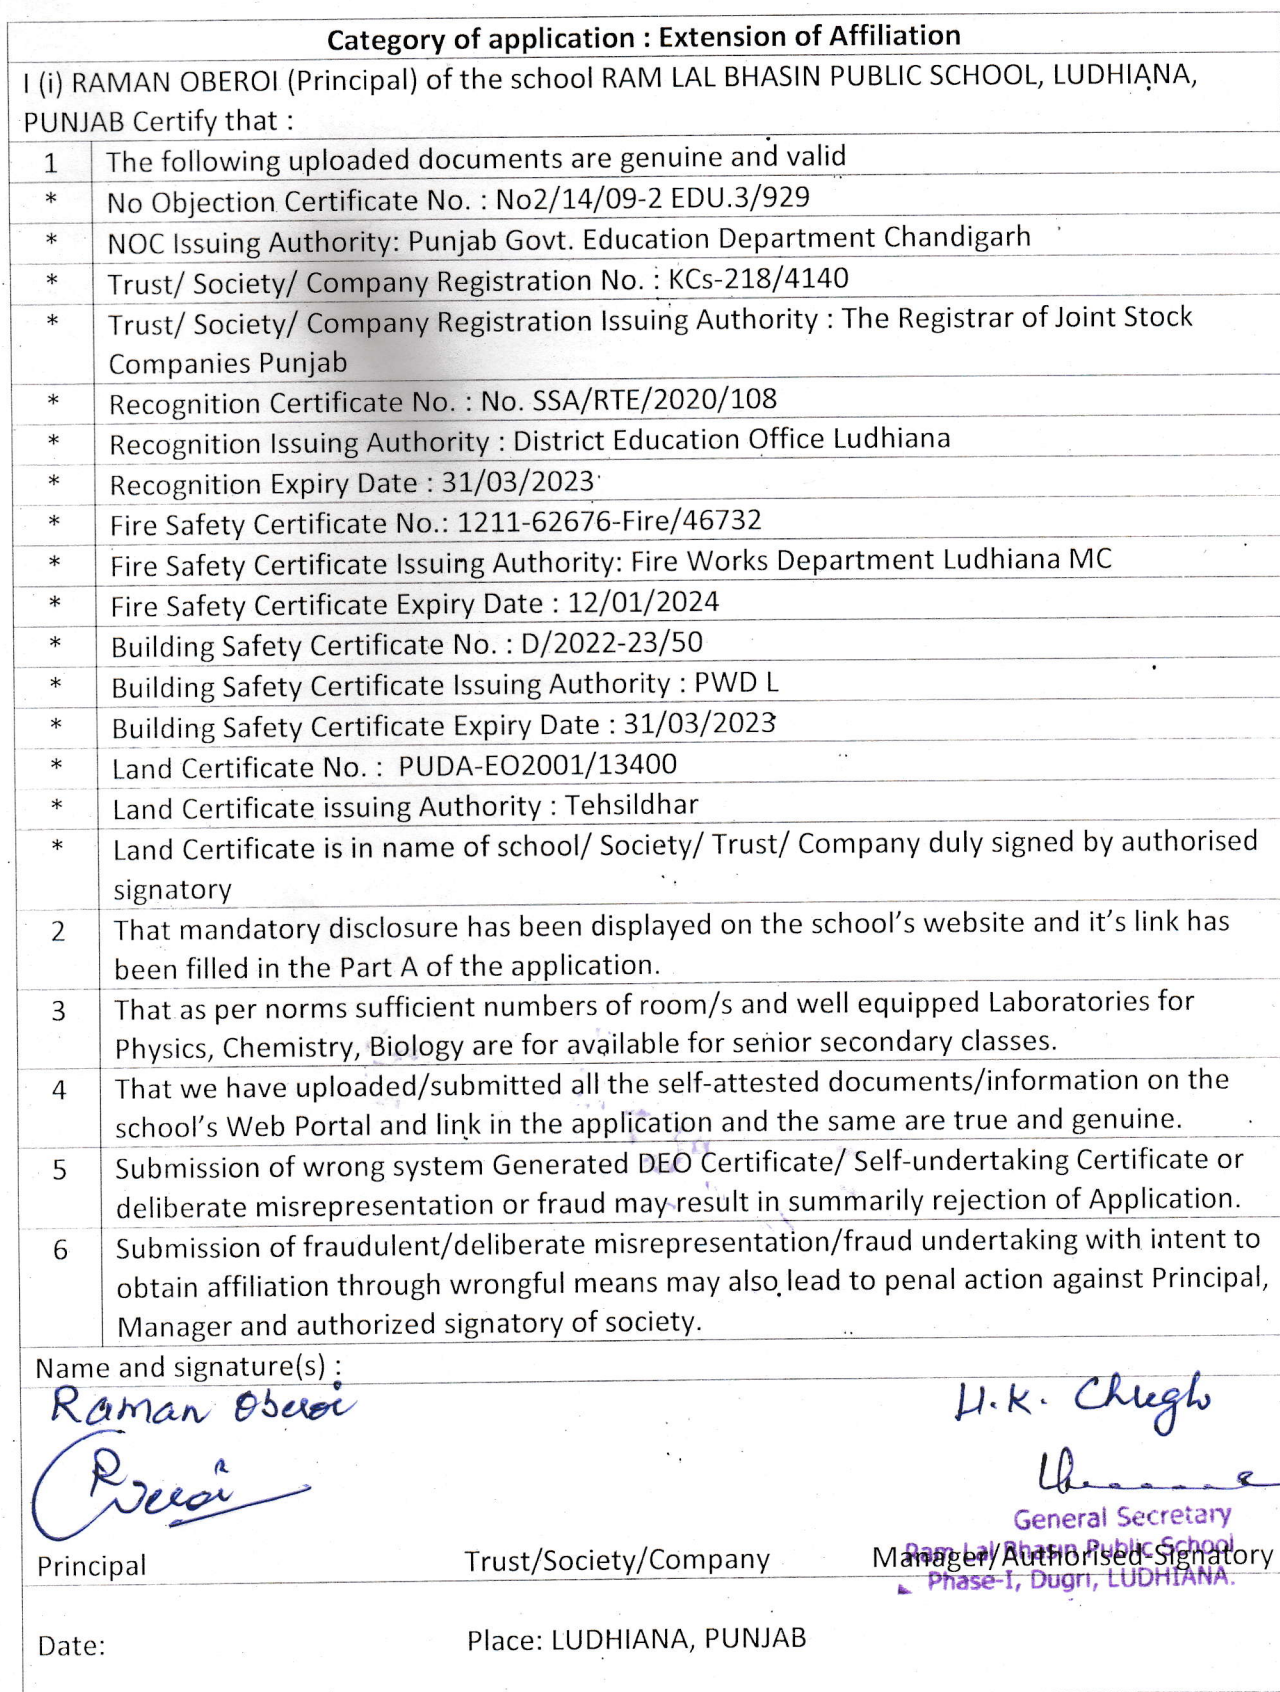 Category of application : Extension of Affiliation
I (i) RAMAN OBEROI (Principal) of the school RAM LAL BHASIN PUBLIC SCHOOL, LUDHIANA,
PUNJAB Certify that :
1 The following uploaded documents are genuine and valid
* No Objection Certificate No. : No2/14/09-2 EDU.3/929
* NOC Issuing Authority: Punjab Govt. Education Department Chandigarh
* Trust/ Society/ Company Registration No. : KCs-218/4140
* Trust/ Society/ Company Registration Issuing Authority : The Registrar of Joint Stock
Companies Punjab
* Recognition Certificate No. : No. SSA/RTE/2020/108
* Recognition Issuing Authority : District Education Office Ludhiana
* Recognition Expiry Date : 31/03/2023
* Fire Safety Certificate No.: 1211-62676-Fire/46732
* Fire Safety Certificate Issuing Authority: Fire Works Department Ludhiana MC
* Fire Safety Certificate Expiry Date : 12/01/2024
* Building Safety Certificate No. : D/2022-23/50
* Building Safety Certificate Issuing Authority : PWD L
* Building Safety Certificate Expiry Date : 31/03/2023
* Land Certificate No. : PUDA-EO2001/13400
* Land Certificate issuing Authority : Tehsildhar
* Land Certificate is in name of school/ Society/ Trust/ Company duly signed by authorised
signatory
2 That mandatory disclosure has been displayed on the school's website and it's link has
been filled in the Part A of the application.
3 That as per norms sufficient numbers of room/s and well equipped Laboratories for
Physics, Chemistry, Biology are for available for senior secondary classes.
4 That we have uploaded/submitted all the self-attested documents/information on the
school's Web Portal and link in the application and the same are true and genuine.
5 Submission of wrong system Generated DEO Certificate/ Self-undertaking Certificate or
deliberate misrepresentation or fraud may result in summarily rejection of Application.
6 Submission of fraudulent/deliberate misrepresentation/fraud undertaking with intent to
obtain affiliation through wrongful means may also lead to penal action against Principal,
Manager and authorized signatory of society.
Name and signature(s) :
Raman Oberoi H.K. Chugh
General Secretary
Ram Lal Bhasin Public School
Phase-I, Dugri, LUDHIANA.
Principal Trust/Society/Company Manager/Authorised Signatory
Date: Place: LUDHIANA, PUNJAB